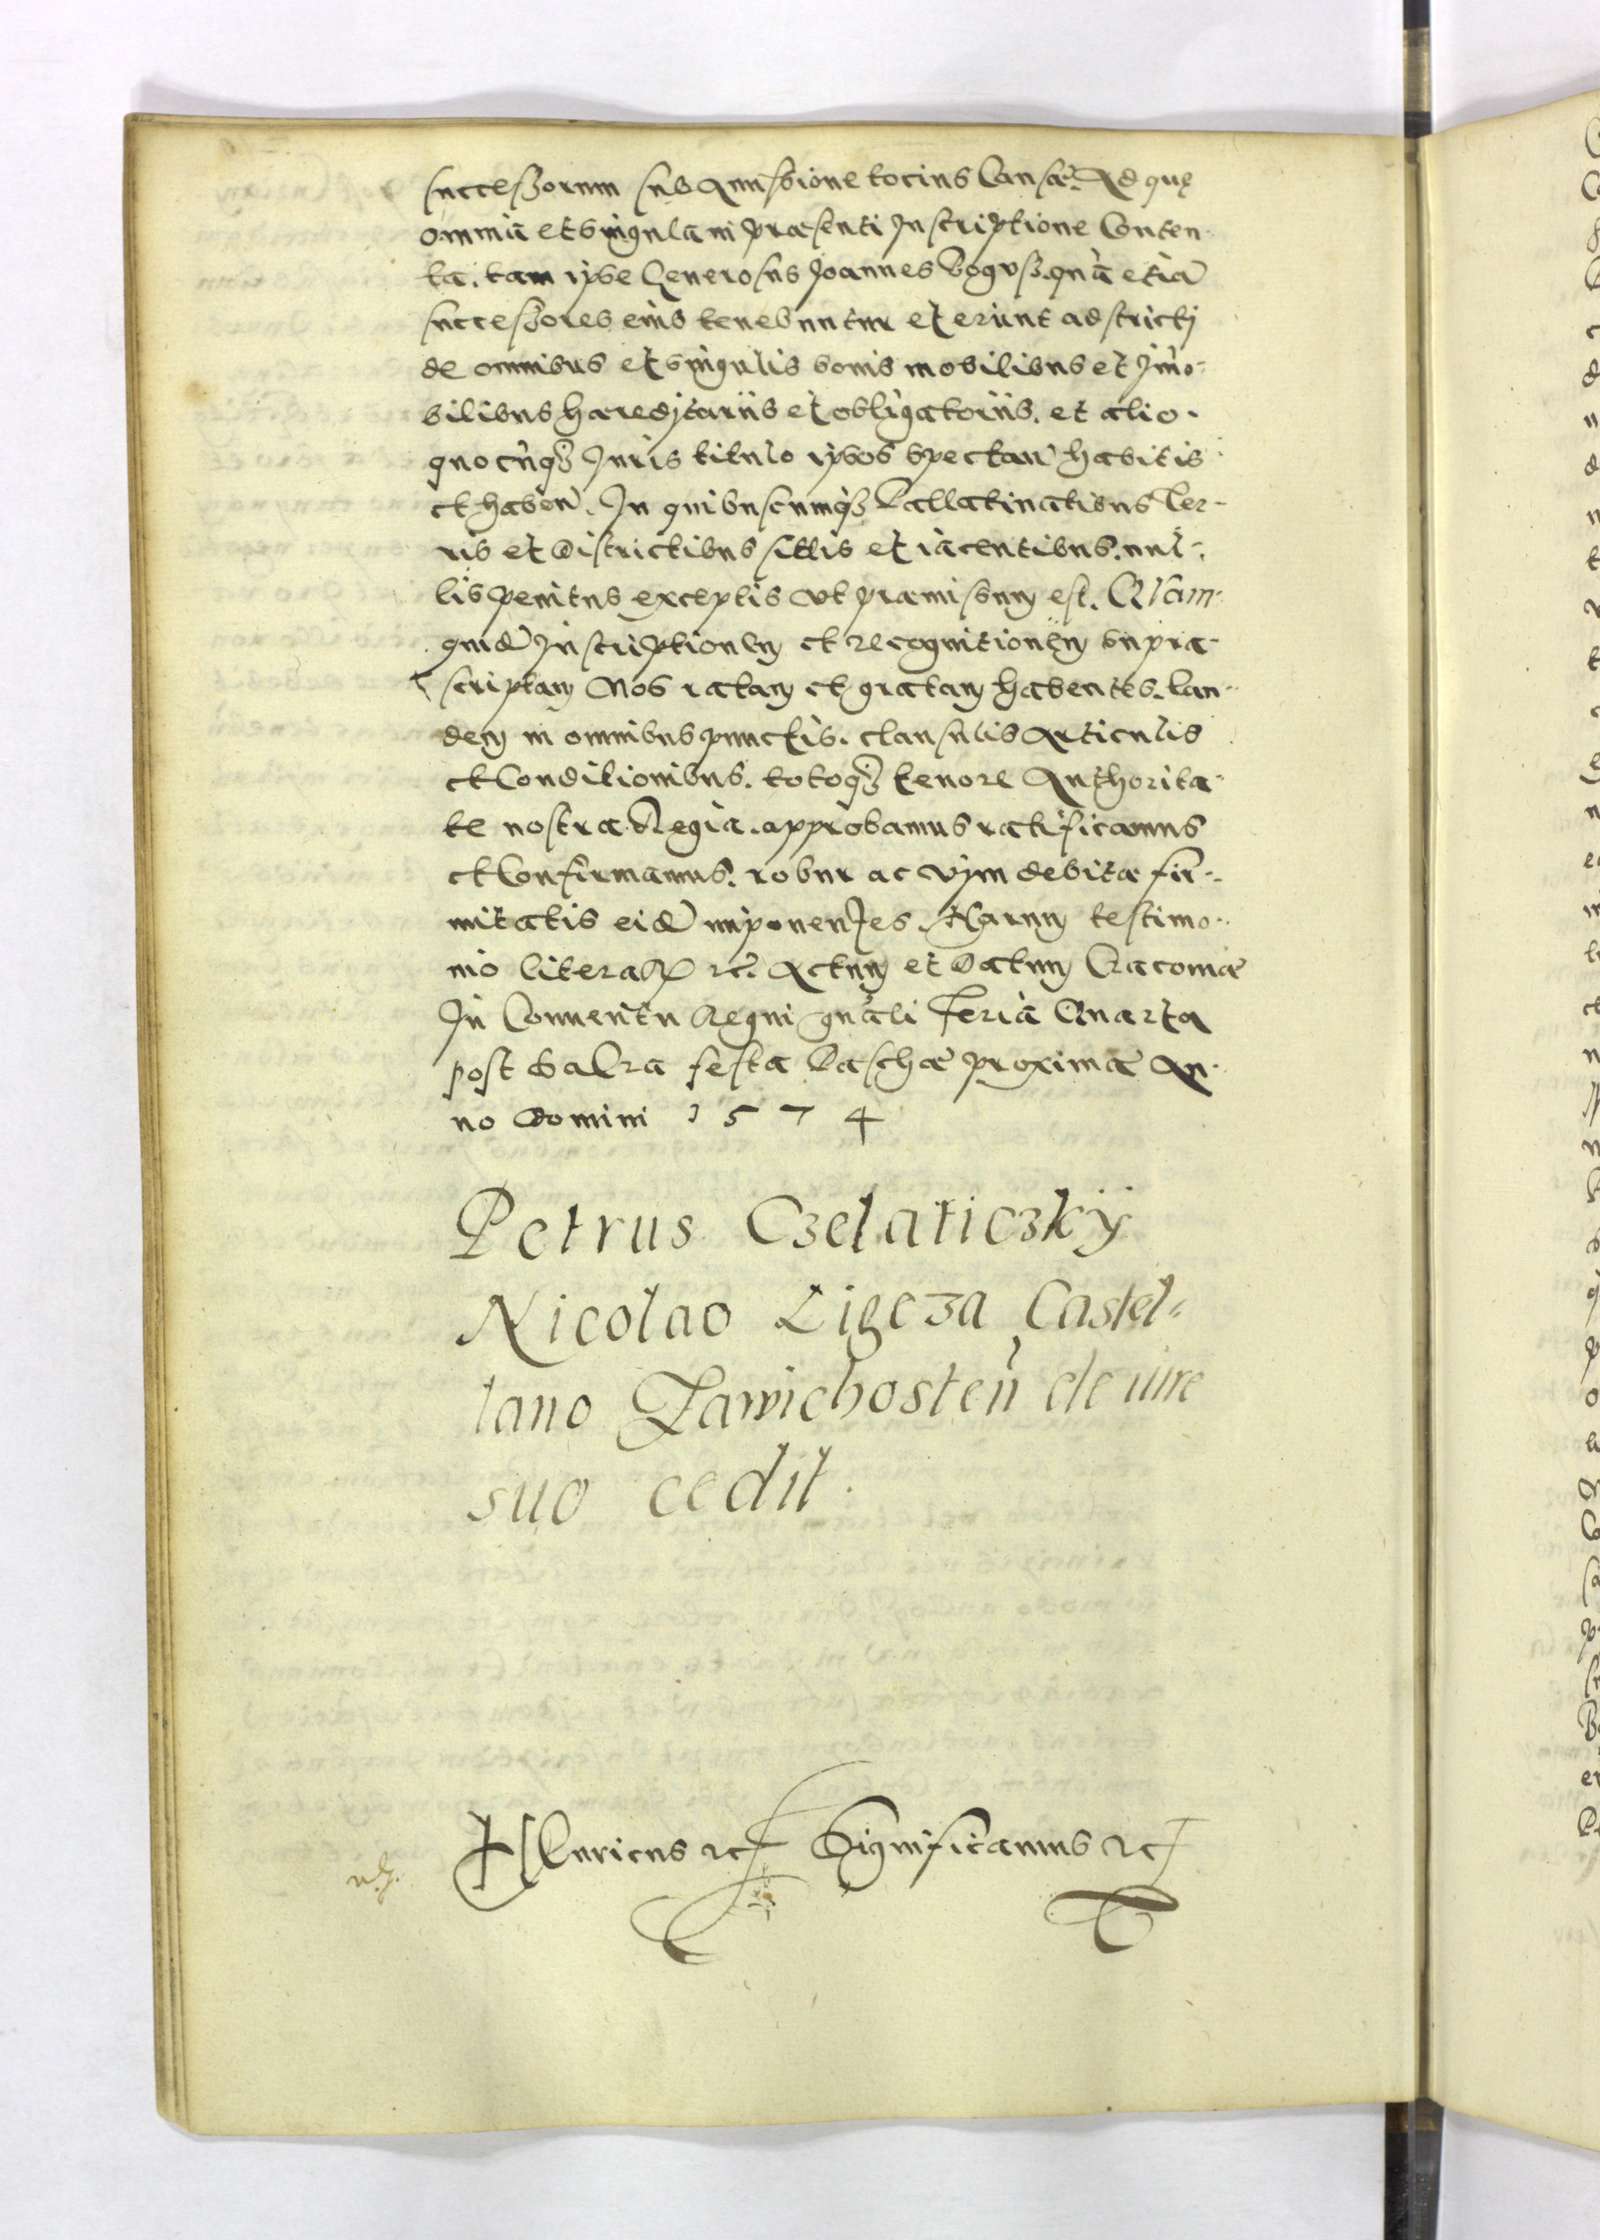 successorum sub amissione totius causæ. Ad quę
omnia et singula in præsenti Inscriptione Conten-
ta. tam ipse Generosus Joannes Bogusz. quā etiā
successores eius tenebuntur et erunt adstricti
de omnibus et singulis bonis mobilibus et Jmo-
bilibus hæreditariis et obligatoriis. et alio-
quocūq3 Juris titulo ipsos spectań habitis
et habeń. In quibuscumq3 Pallatinatibus Ter-
ris et Districtibus sittis et iacentibus. nul-
lis penitus exceptis vt præmissum est. Quam
quidē Inscriptionem et recognitionem supra-
scriptam Nos ratam et gratam habentes. ean-
dem in omnibus punctis. clausulis Articulis
et Conditionibus. totoq3 tenore Authorita-
te nostra Regia. approbamus ratificamus
et Confirmamus. robur ac vim debitæ fir-
mitatis eidē imponentes. Harum testimo-
nio literarꝝ etc. Actum et Datum Cracoviæ
In Conventu Regni gnāli Feria Quarta
post Sacra festa Paschæ proxima An-
no Domini 1574
Petrus Czelaticzky
Nicolao Ligęza Castel-
lano Zawichosteń de iure
suo cedit.
Henricus etc Significamus etc